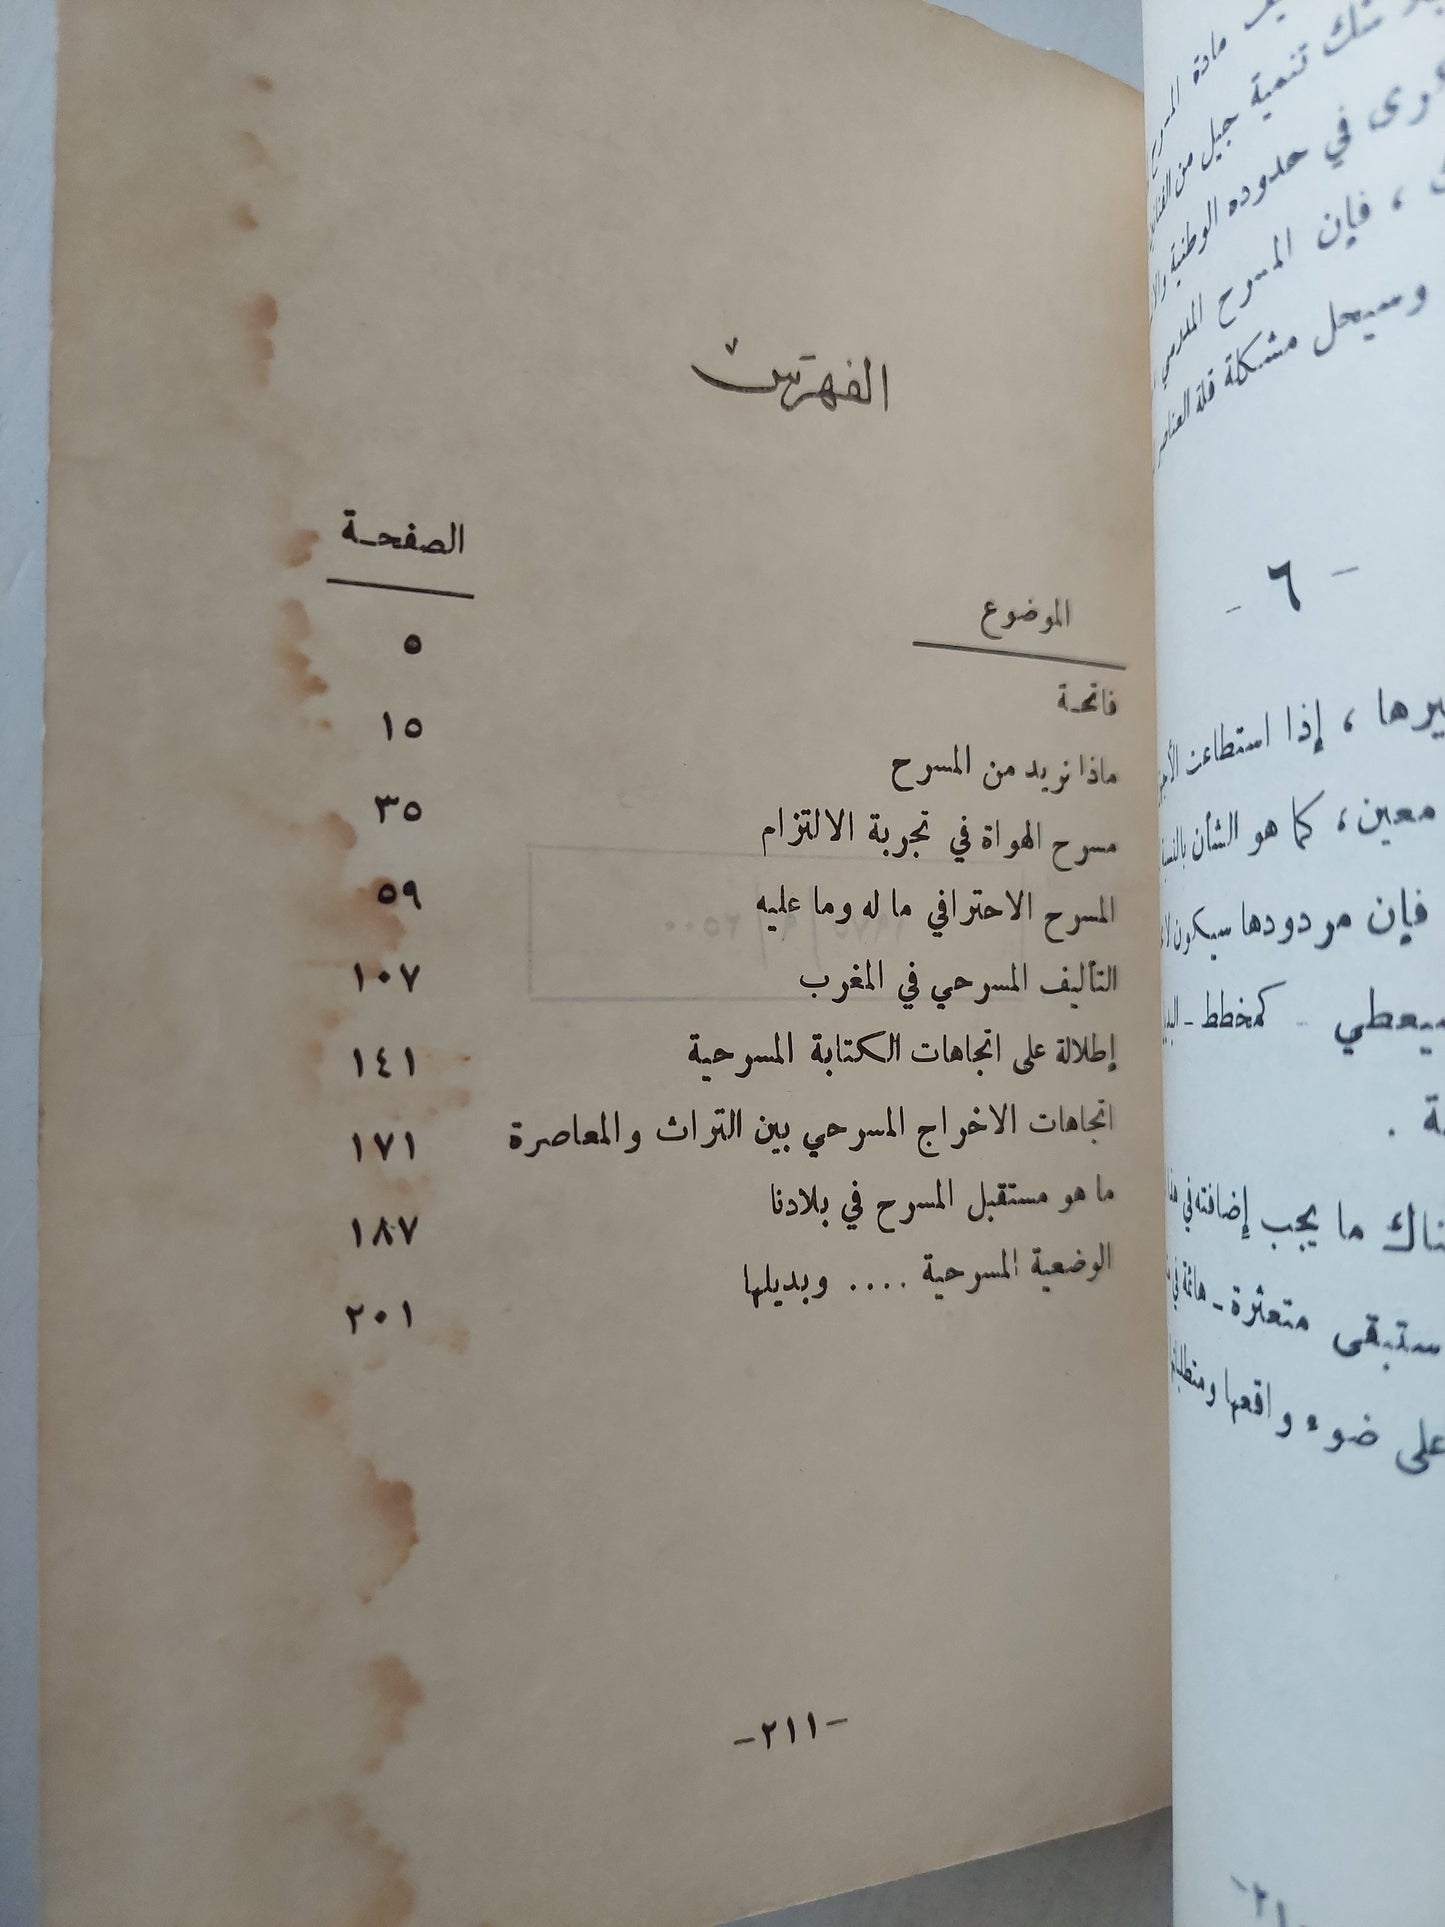 الفهرس
الموضوع الصفحة
فاتحة ٥
ماذا نريد من المسرح ١٥
مسرح الهواة في تجربة الالتزام ٣٥
المسرح الاحترافي ما له وما عليه ٥٩
التأليف المسرحي في المغرب ١٠٧
إطلالة على اتجاهات الكتابة المسرحية ١٤١
اتجاهات الاخراج المسرحي بين التراث والمعاصرة ١٧١
ما هو مستقبل المسرح في بلادنا ١٨٧
الوضعية المسرحية .... وبديلها ٢٠١
-٢١١-
مادة المسرح
شك تنمية جيل من
في حدوده الوطنية
، فإن المسرح المدرسي
وسيحل مشكلة قلة
- ٦ -
، إذا استطاعت
معين، كما هو الشأن
فإن مردودها سيكون
كمخطط -
ما يجب إضافته في
ستبقى متعثرة - هائمة في
على ضوء واقعها